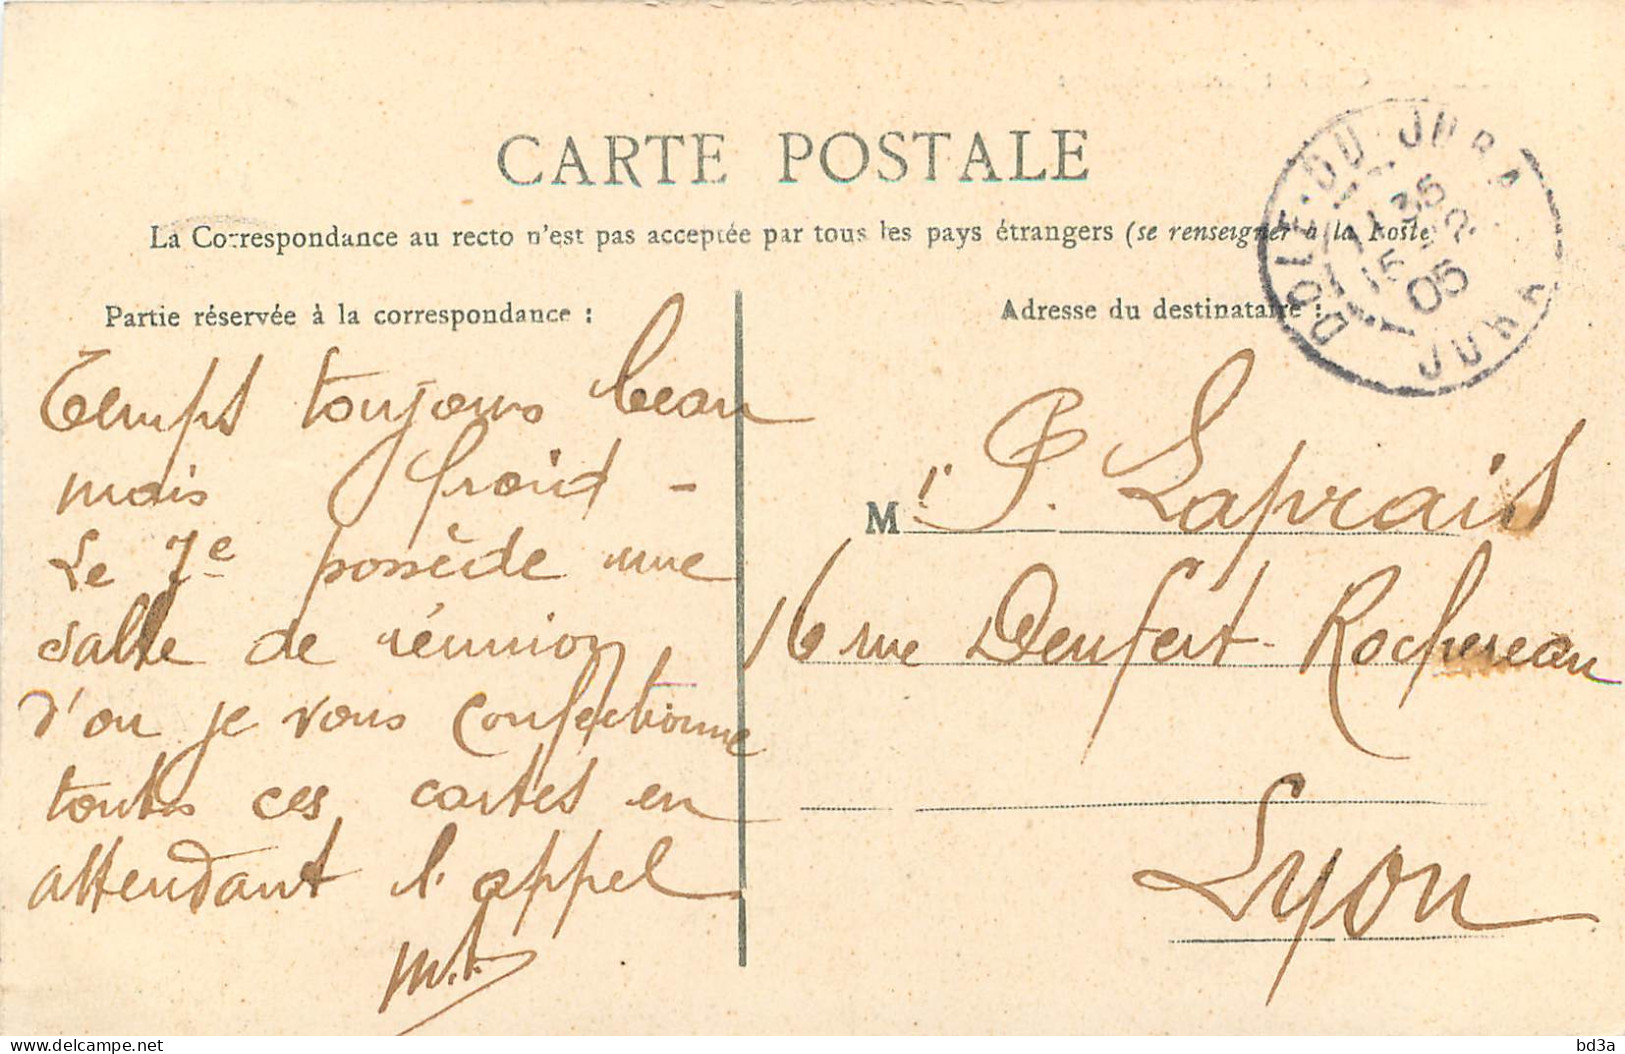 CARTE POSTALE
La Correspondance au recto n'est pas acceptée par tous les pays étrangers (se renseigner à la Poste
Partie réservée à la correspondance :
Temps toujours beau
mais froid -
Le 7e possède une
salle de réunion
d'ou je vous confectionne
toutes ces cartes en
attendant l'appel
Adresse du destinataire :
M r P. Laprais
16 rue Denfert-Rochereau
Lyon
DOLE-DU-JURA
15
05
JURA
delcampe.net
bd3a